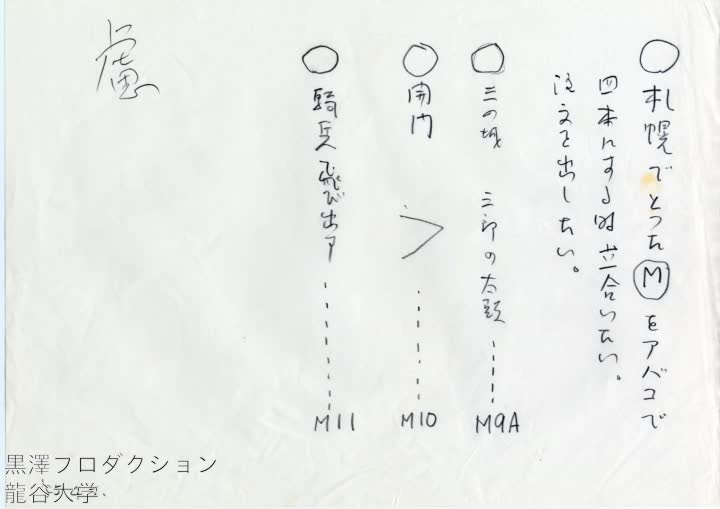 ○札幌でとったⓂをアバコで
四本にする時立合いたい。
注文を出したい。
○三の城 三郎の太鼓 ・・・・・・ M9A
○開門 ・・・・・・ M10
○騎兵飛び出ス ・・・・・・ M11
慮
黒澤プロダクション
龍谷大学